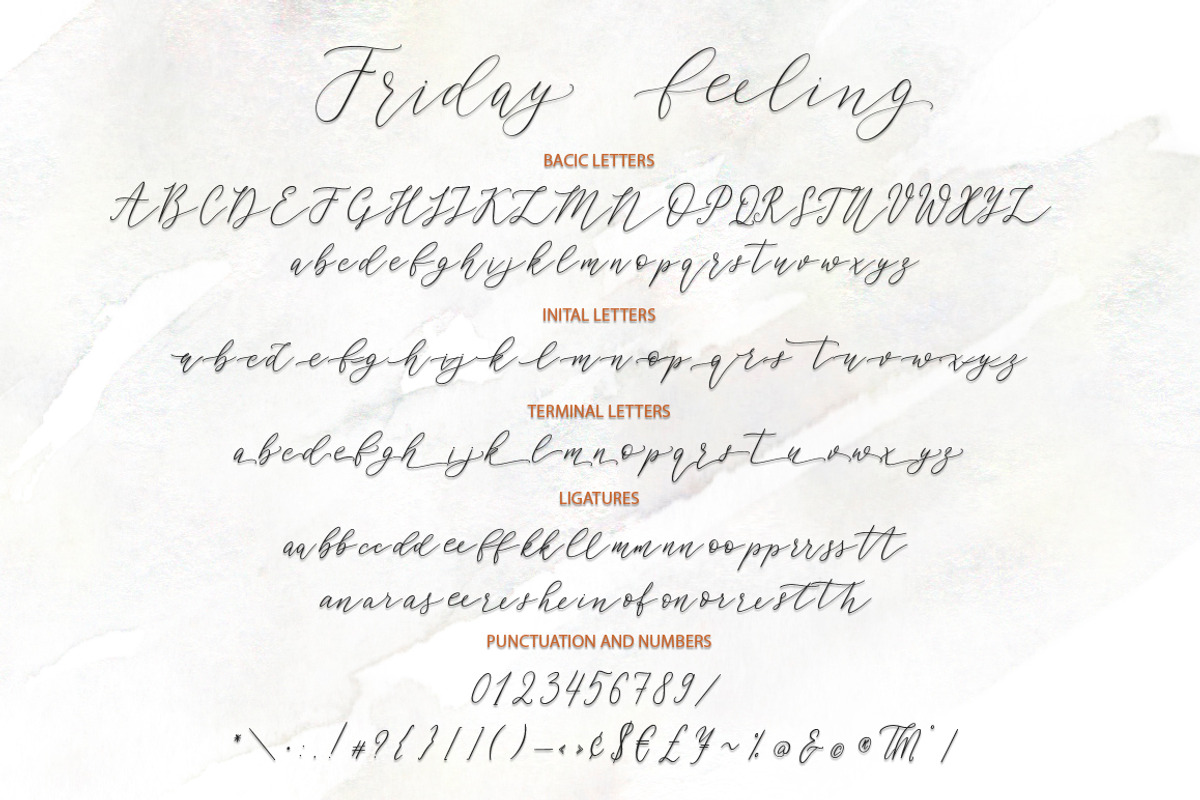 Friday feeling
BACIC LETTERS
ABCDEFGHIJKLMNOPQRSTUVWXYZ
abcdefghijklmnopqrstuvwxyz
INITAL LETTERS
abcdefghijklmnopqrstuvwxyz
TERMINAL LETTERS
abcdefghijklmnopqrstuvwxyz
LIGATURES
aabbccddeeffkkllmmnnoopprrsstt
anaraseeresheinofonorrestth
PUNCTUATION AND NUMBERS
0123456789/
*\·:.!#?{}[]()—‹›¢$€£¥~%@&©®™°/